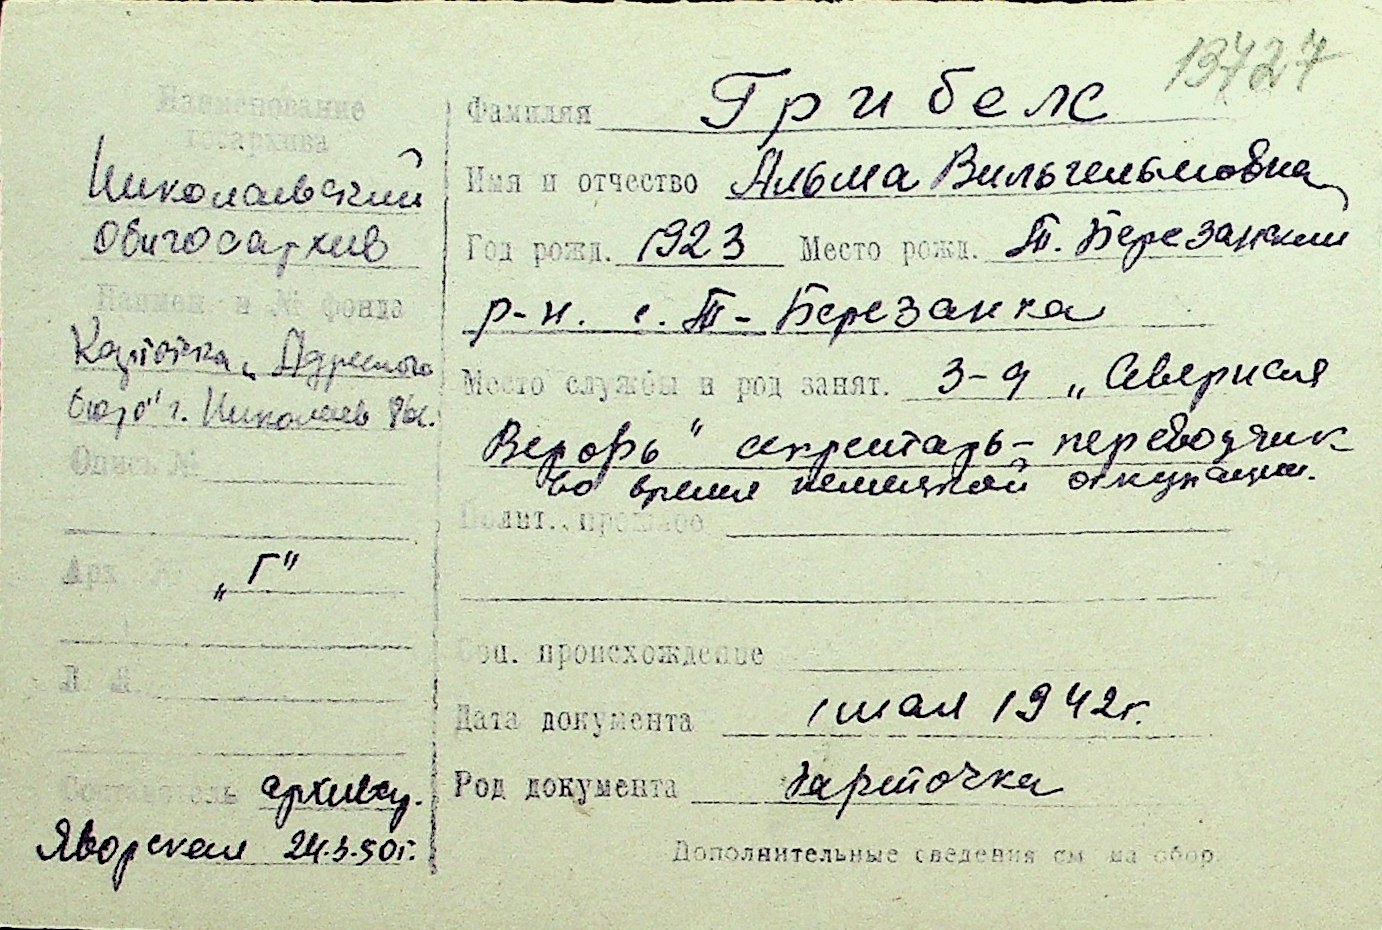 13427
Наименование
госархива
Николаевский
Облгосархив
Наимен. и № фонда
Картотка „Адресного
бюро" г. Николаев
Опись №
Арх. № „Г"
Л. Л.
Составитель архивар.
Яворская 24.3.50г.
Фамилия Грибель
Имя и отчество Альма Вильгельмовна
Год рожд. 1923 Место рожд. Т. Березанский
р-н. с. Т-Березанка
Место службы и род занят. З-д „Северная
Верфь" секретарь-переводчик
во время немецкой оккупации.
Полит. прошлое
Соц. происхождение
Дата документа 1 мая 1942г.
Род документа карточка
Дополнительные сведения см. на обор.